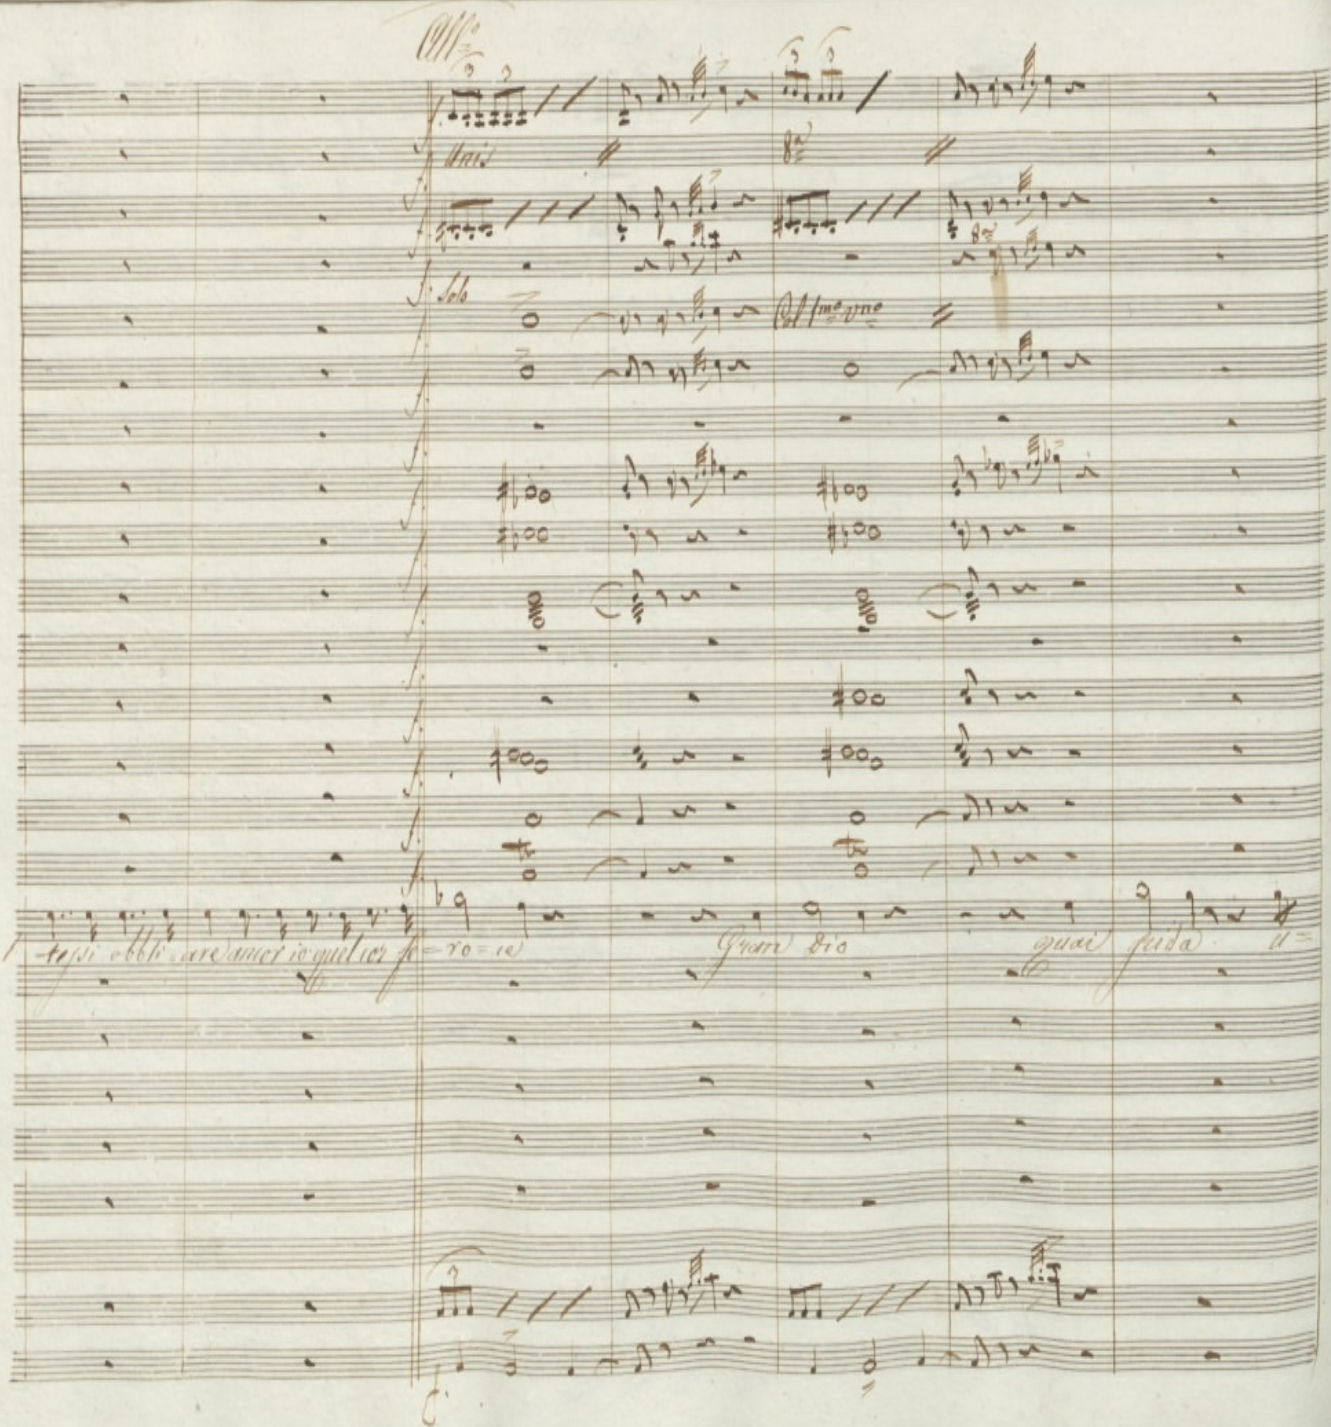 All°
3 3 3 3
f. Unis 8ª
8ª
f. Solo
Col 1mo vno
tr tr
tessi obbli are amor io quel cor fe = ro = ce Gran Dio quai grida u =
3
f.